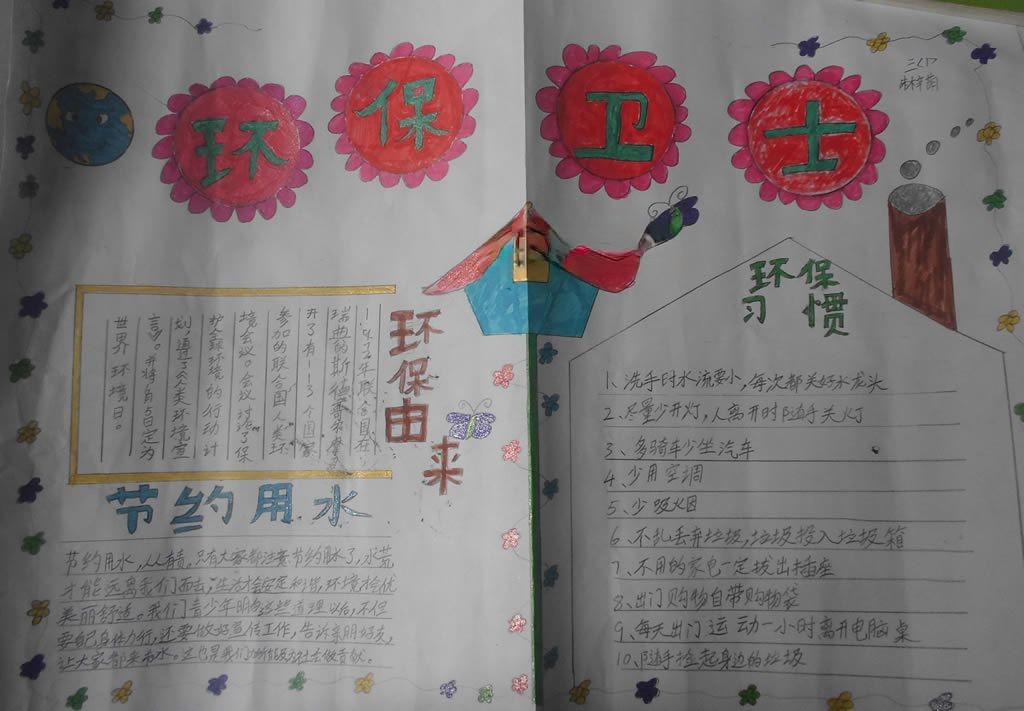 环保卫士
二(1)
环保由来
1972年联合国在
瑞典的斯德哥尔摩召
开了有113个国家
参加的联合国人类环
境会议。会议讨论了保
护全球环境的行动计
划,通过了《人类环境宣
言》。并将6月5日定为
世界环境日。
节约用水
节约用水,人人有责。只有大家都注意节约用水了,水荒
才能远离我们而去,生活才会安定和谐,环境才会优
美舒适。我们青少年明白这些道理以后,不但
要自己身体力行,还要做好宣传工作,告诉亲朋好友,
让大家都来节水。这也是我们力所能及为社会做贡献。
环保
习惯
1、洗手时水流要小,每次都关好水龙头
2、尽量少开灯,人离开时随手关灯
3、多骑车少坐汽车
4、少用空调
5、少吸烟
6、不乱丢弃垃圾,垃圾投入垃圾箱
7、不用的家电一定拔出插座
8、出门购物自带购物袋
9、每天出门运动一小时离开电脑桌
10、随手捡起身边的垃圾